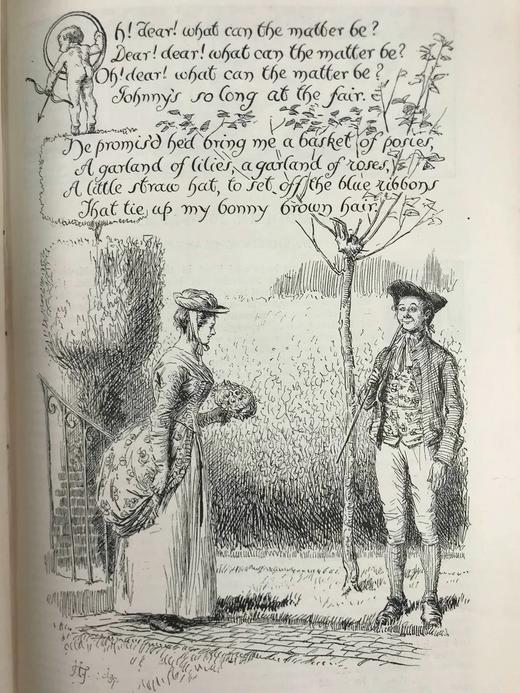 Oh! dear! what can the matter be?
Dear! dear! what can the matter be?
Oh! dear! what can the matter be?
Johnny's so long at the fair.
He promis'd he'd bring me a basket of posies,
A garland of lilies, a garland of roses,
A little straw hat, to set off the blue ribbons
That tie up my bonny brown hair.